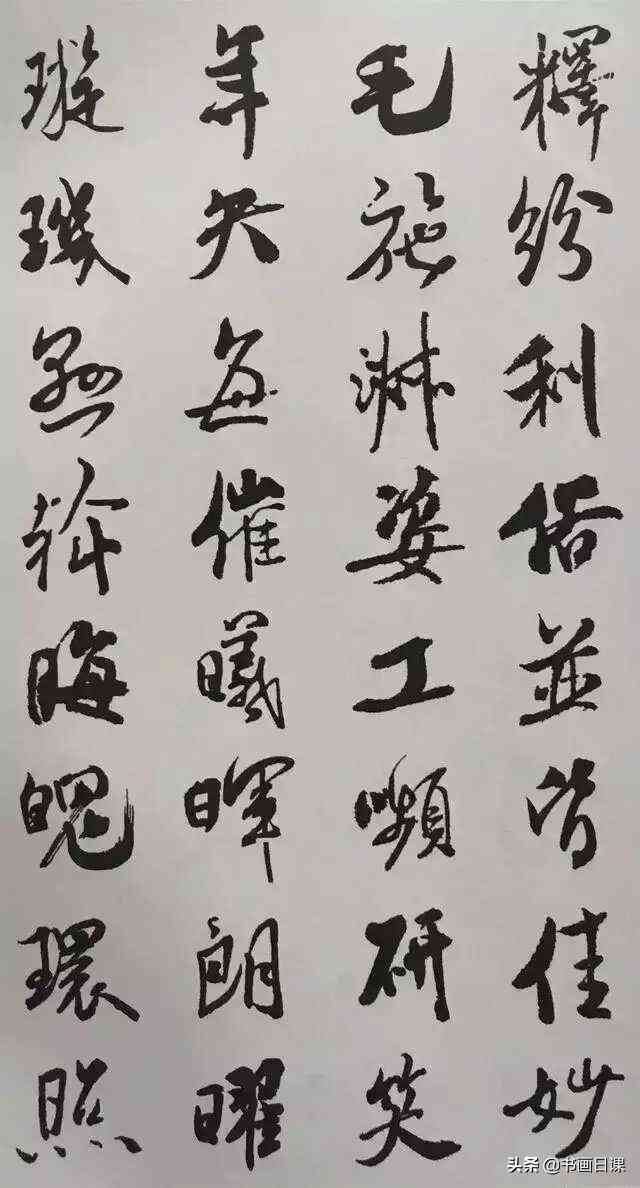 釋紛利俗並皆佳妙
毛施淑姿工嚬研笑
年矢每催曦暉朗曜
璇璣懸斡晦魄環照
头条 @书画日课